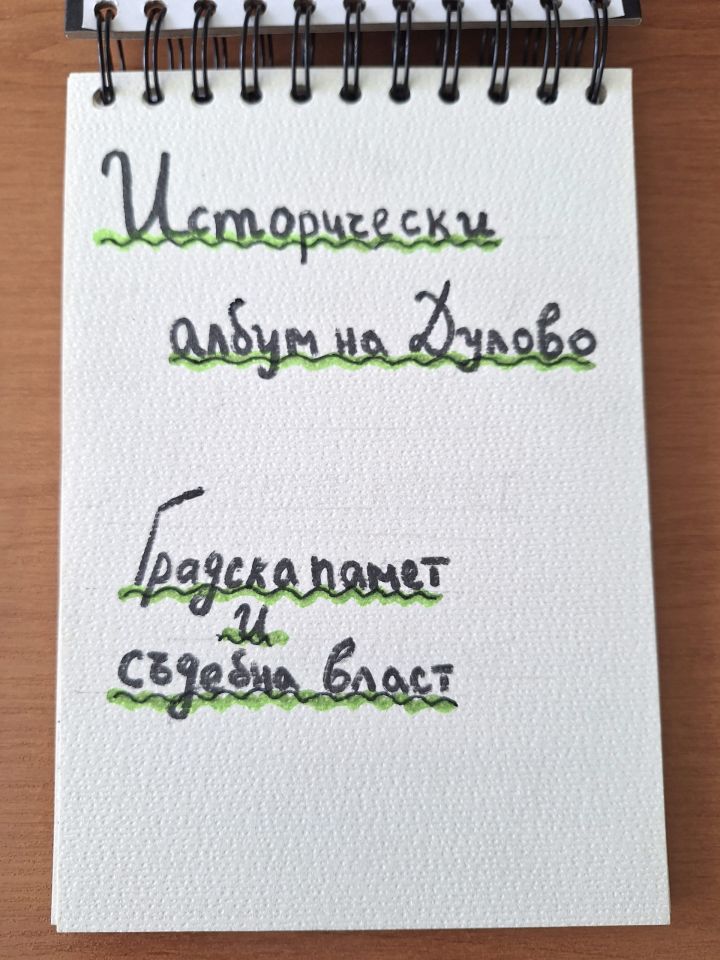 Исторически
албум на Дулово
Градска памет
и
съдебна власт